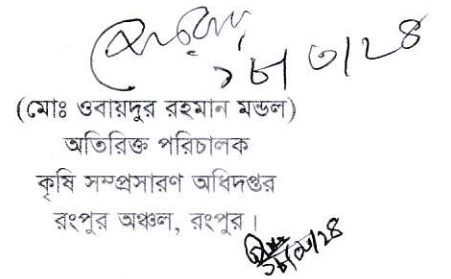 ১৮/৩/২৪
(মোঃ ওবায়দুর রহমান মন্ডল)
অতিরিক্ত পরিচালক
কৃষি সম্প্রসারণ অধিদপ্তর
রংপুর অঞ্চল, রংপুর।